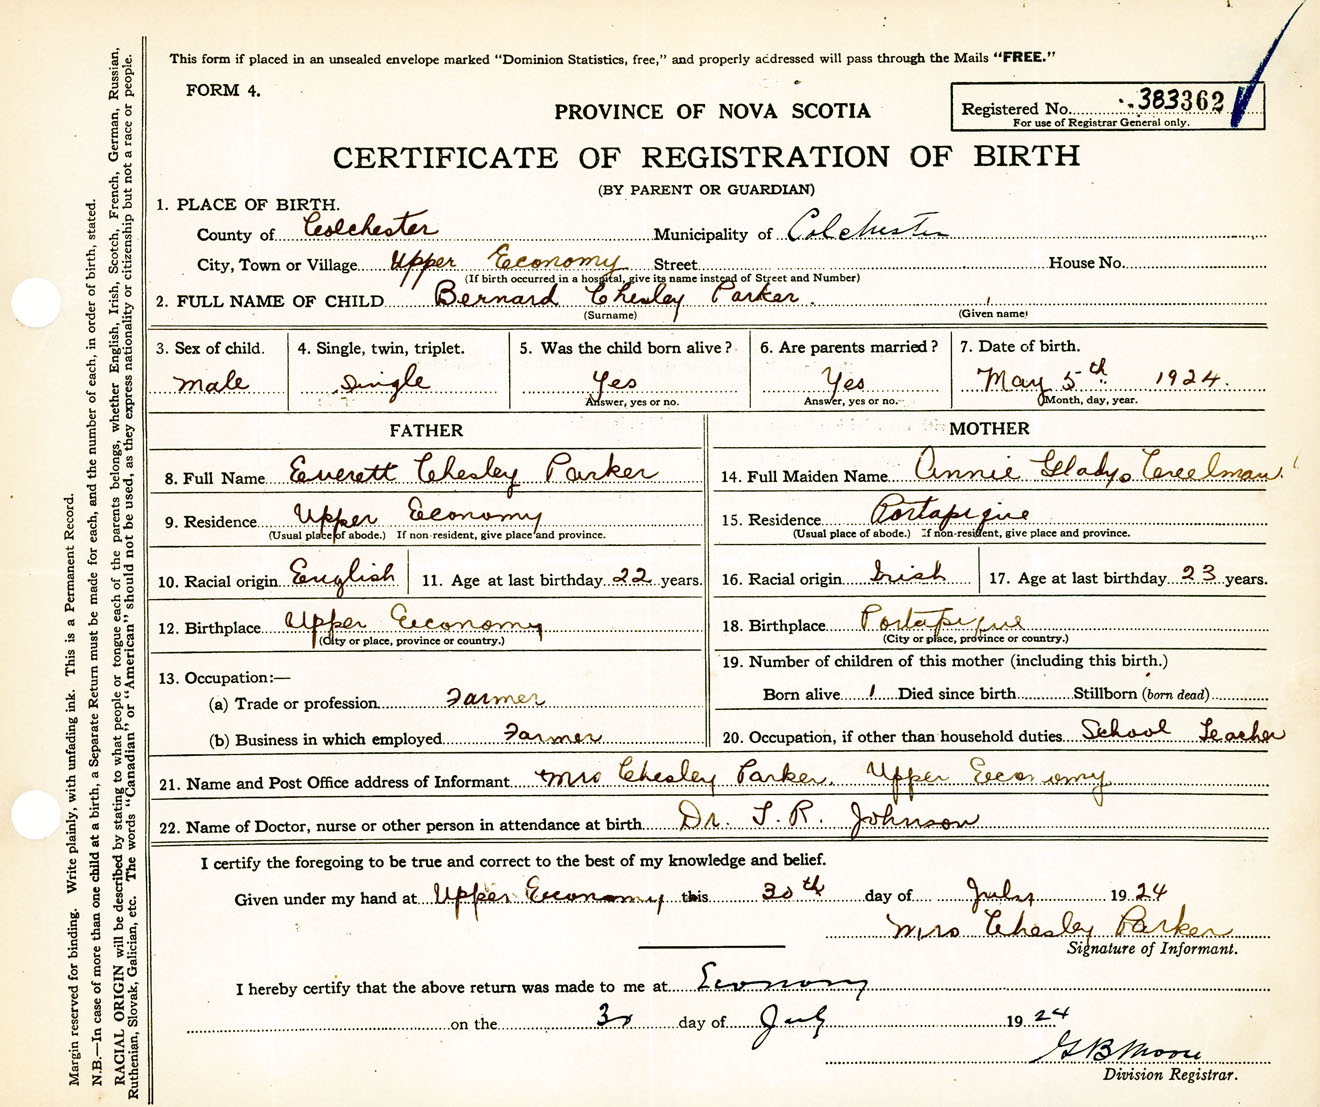 This form if placed in an unsealed envelope marked "Dominion Statistics, free," and properly addressed will pass through the Mails "FREE."
FORM 4.
PROVINCE OF NOVA SCOTIA
Registered No. 383362
For use of Registrar General only.
CERTIFICATE OF REGISTRATION OF BIRTH
(BY PARENT OR GUARDIAN)
1. PLACE OF BIRTH.
County of Colchester Municipality of Colchester
City, Town or Village Upper Economy Street House No.
(If birth occurred in a hospital, give its name instead of Street and Number)
2. FULL NAME OF CHILD Bernard Chesley Parker
(Surname) (Given name)
3. Sex of child. 4. Single, twin, triplet. 5. Was the child born alive? 6. Are parents married? 7. Date of birth.
male Single Yes Yes May 5th 1924.
Answer, yes or no. Answer, yes or no. Month, day, year.
FATHER MOTHER
8. Full Name Everett Chesley Parker 14. Full Maiden Name Annie Gladys Creelman
9. Residence Upper Economy 15. Residence Portapique
(Usual place of abode.) If non-resident, give place and province. (Usual place of abode.) If non-resident, give place and province.
10. Racial origin English 11. Age at last birthday 22 years. 16. Racial origin Irish 17. Age at last birthday 23 years.
12. Birthplace Upper Economy 18. Birthplace Portapique
(City or place, province or country.) (City or place, province or country.)
13. Occupation:— 19. Number of children of this mother (including this birth.)
(a) Trade or profession Farmer Born alive 1 Died since birth Stillborn (born dead)
(b) Business in which employed Farmer 20. Occupation, if other than household duties School Teacher
21. Name and Post Office address of Informant Mrs Chesley Parker, Upper Economy
22. Name of Doctor, nurse or other person in attendance at birth Dr. T. R. Johnson
I certify the foregoing to be true and correct to the best of my knowledge and belief.
Given under my hand at Upper Economy this 30th day of July 1924
Mrs Chesley Parker
Signature of Informant.
I hereby certify that the above return was made to me at Economy
on the 30 day of July 1924
G B Moore
Division Registrar.
Margin reserved for binding. Write plainly, with unfading ink. This is a Permanent Record.
N.B.—In case of more than one child at a birth, a Separate Return must be made for each, and the number of each, in order of birth, stated.
RACIAL ORIGIN will be described by stating to what people or tongue each of the parents belongs, whether English, Irish, Scotch, French, German, Russian,
Ruthenian, Slovak, Galician, etc. The words "Canadian" or "American" should not be used, as they express nationality or citizenship but not a race or people.